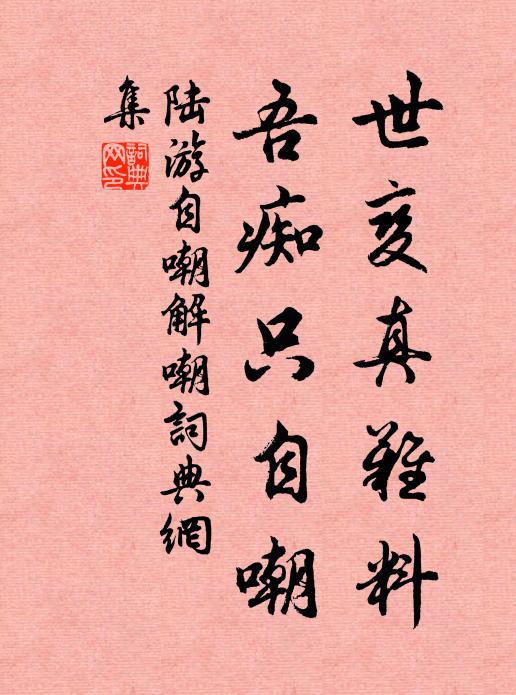 世变真难料
吾痴只自嘲
陆游自嘲解嘲詞典網
集
詞典網印